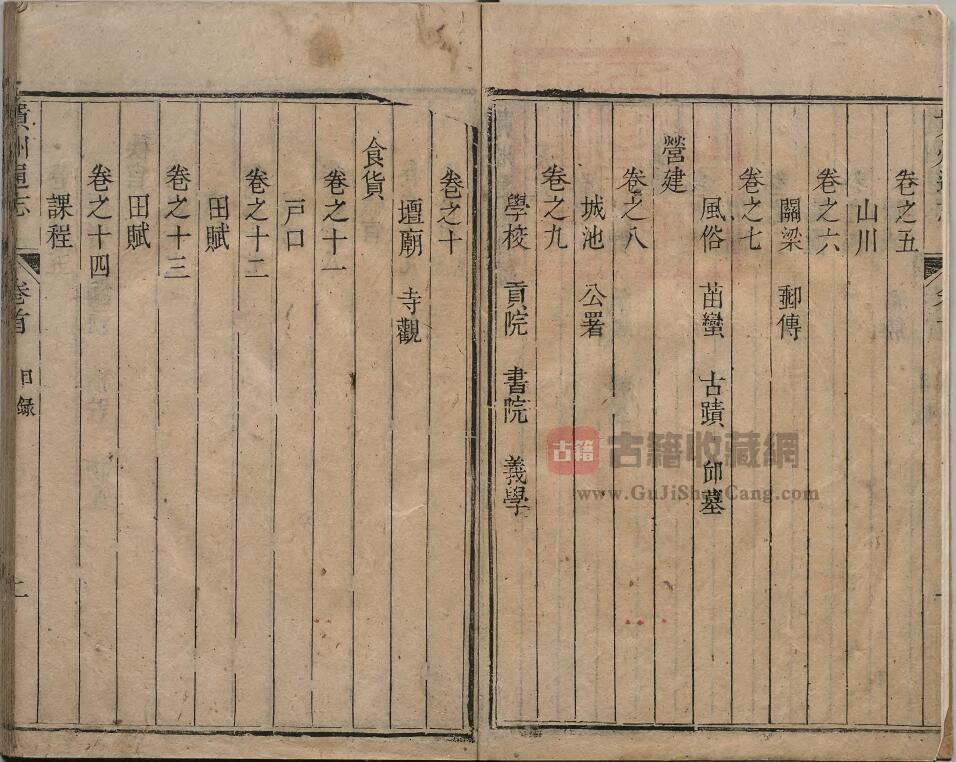 卷之五
山川
卷之六
關梁 郵傳
卷之七
風俗 苗蠻 古蹟 邱墓
營建
卷之八
城池 公署
卷之九
學校 貢院 書院 義學
卷之十
壇廟 寺觀
食貨
卷之十一
戸口
卷之十二
田賦
卷之十三
田賦
卷之十四
課程
貴州通志 卷首 目錄
古籍 古籍收藏網
www.GuJiShouCang.com